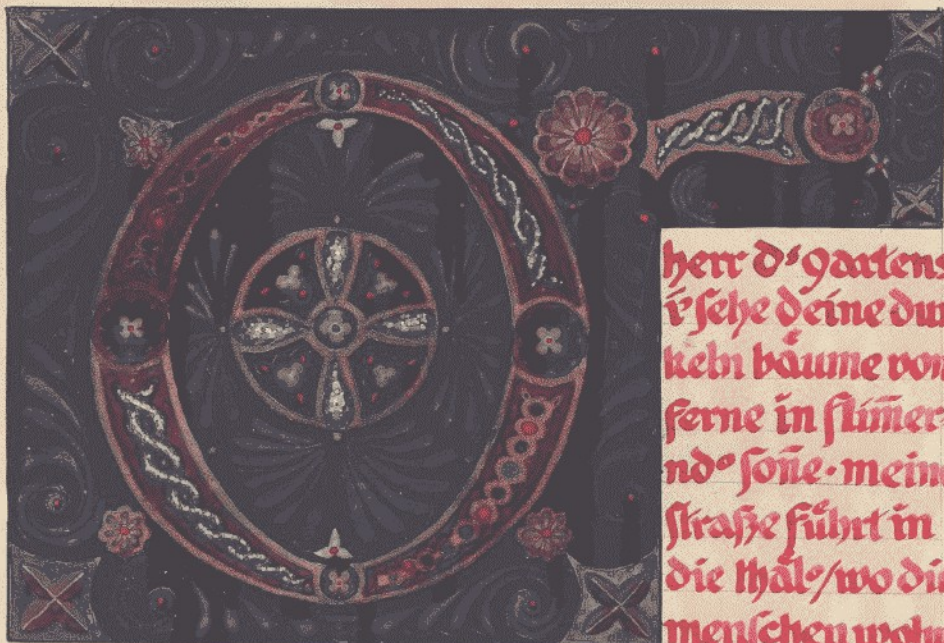 O
herr d' gartens
i' sehe deine dun
keln bäume von
ferne in flim̄er
nd° son̄e· meine
straße führt in
die thäl°/wo die
menschen wohn